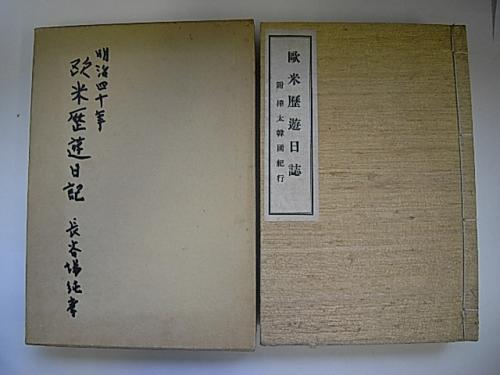 明治四十年
欧米歴遊日記
長谷場純孝
歐米歷遊日誌
附樺太韓國紀行